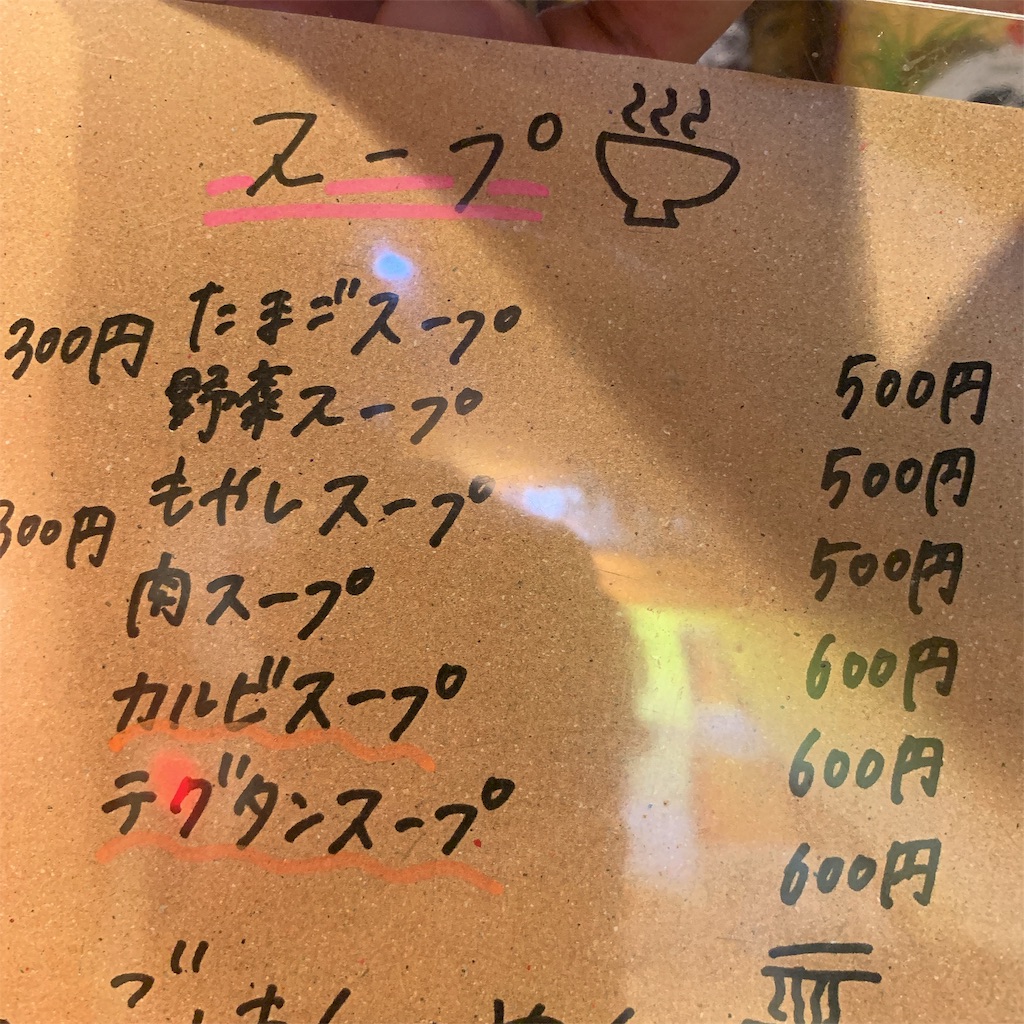 スープ
たまごスープ 500円
300円
野菜スープ 500円
もやしスープ 500円
300円
肉スープ 600円
カルビスープ 600円
テグタンスープ 600円